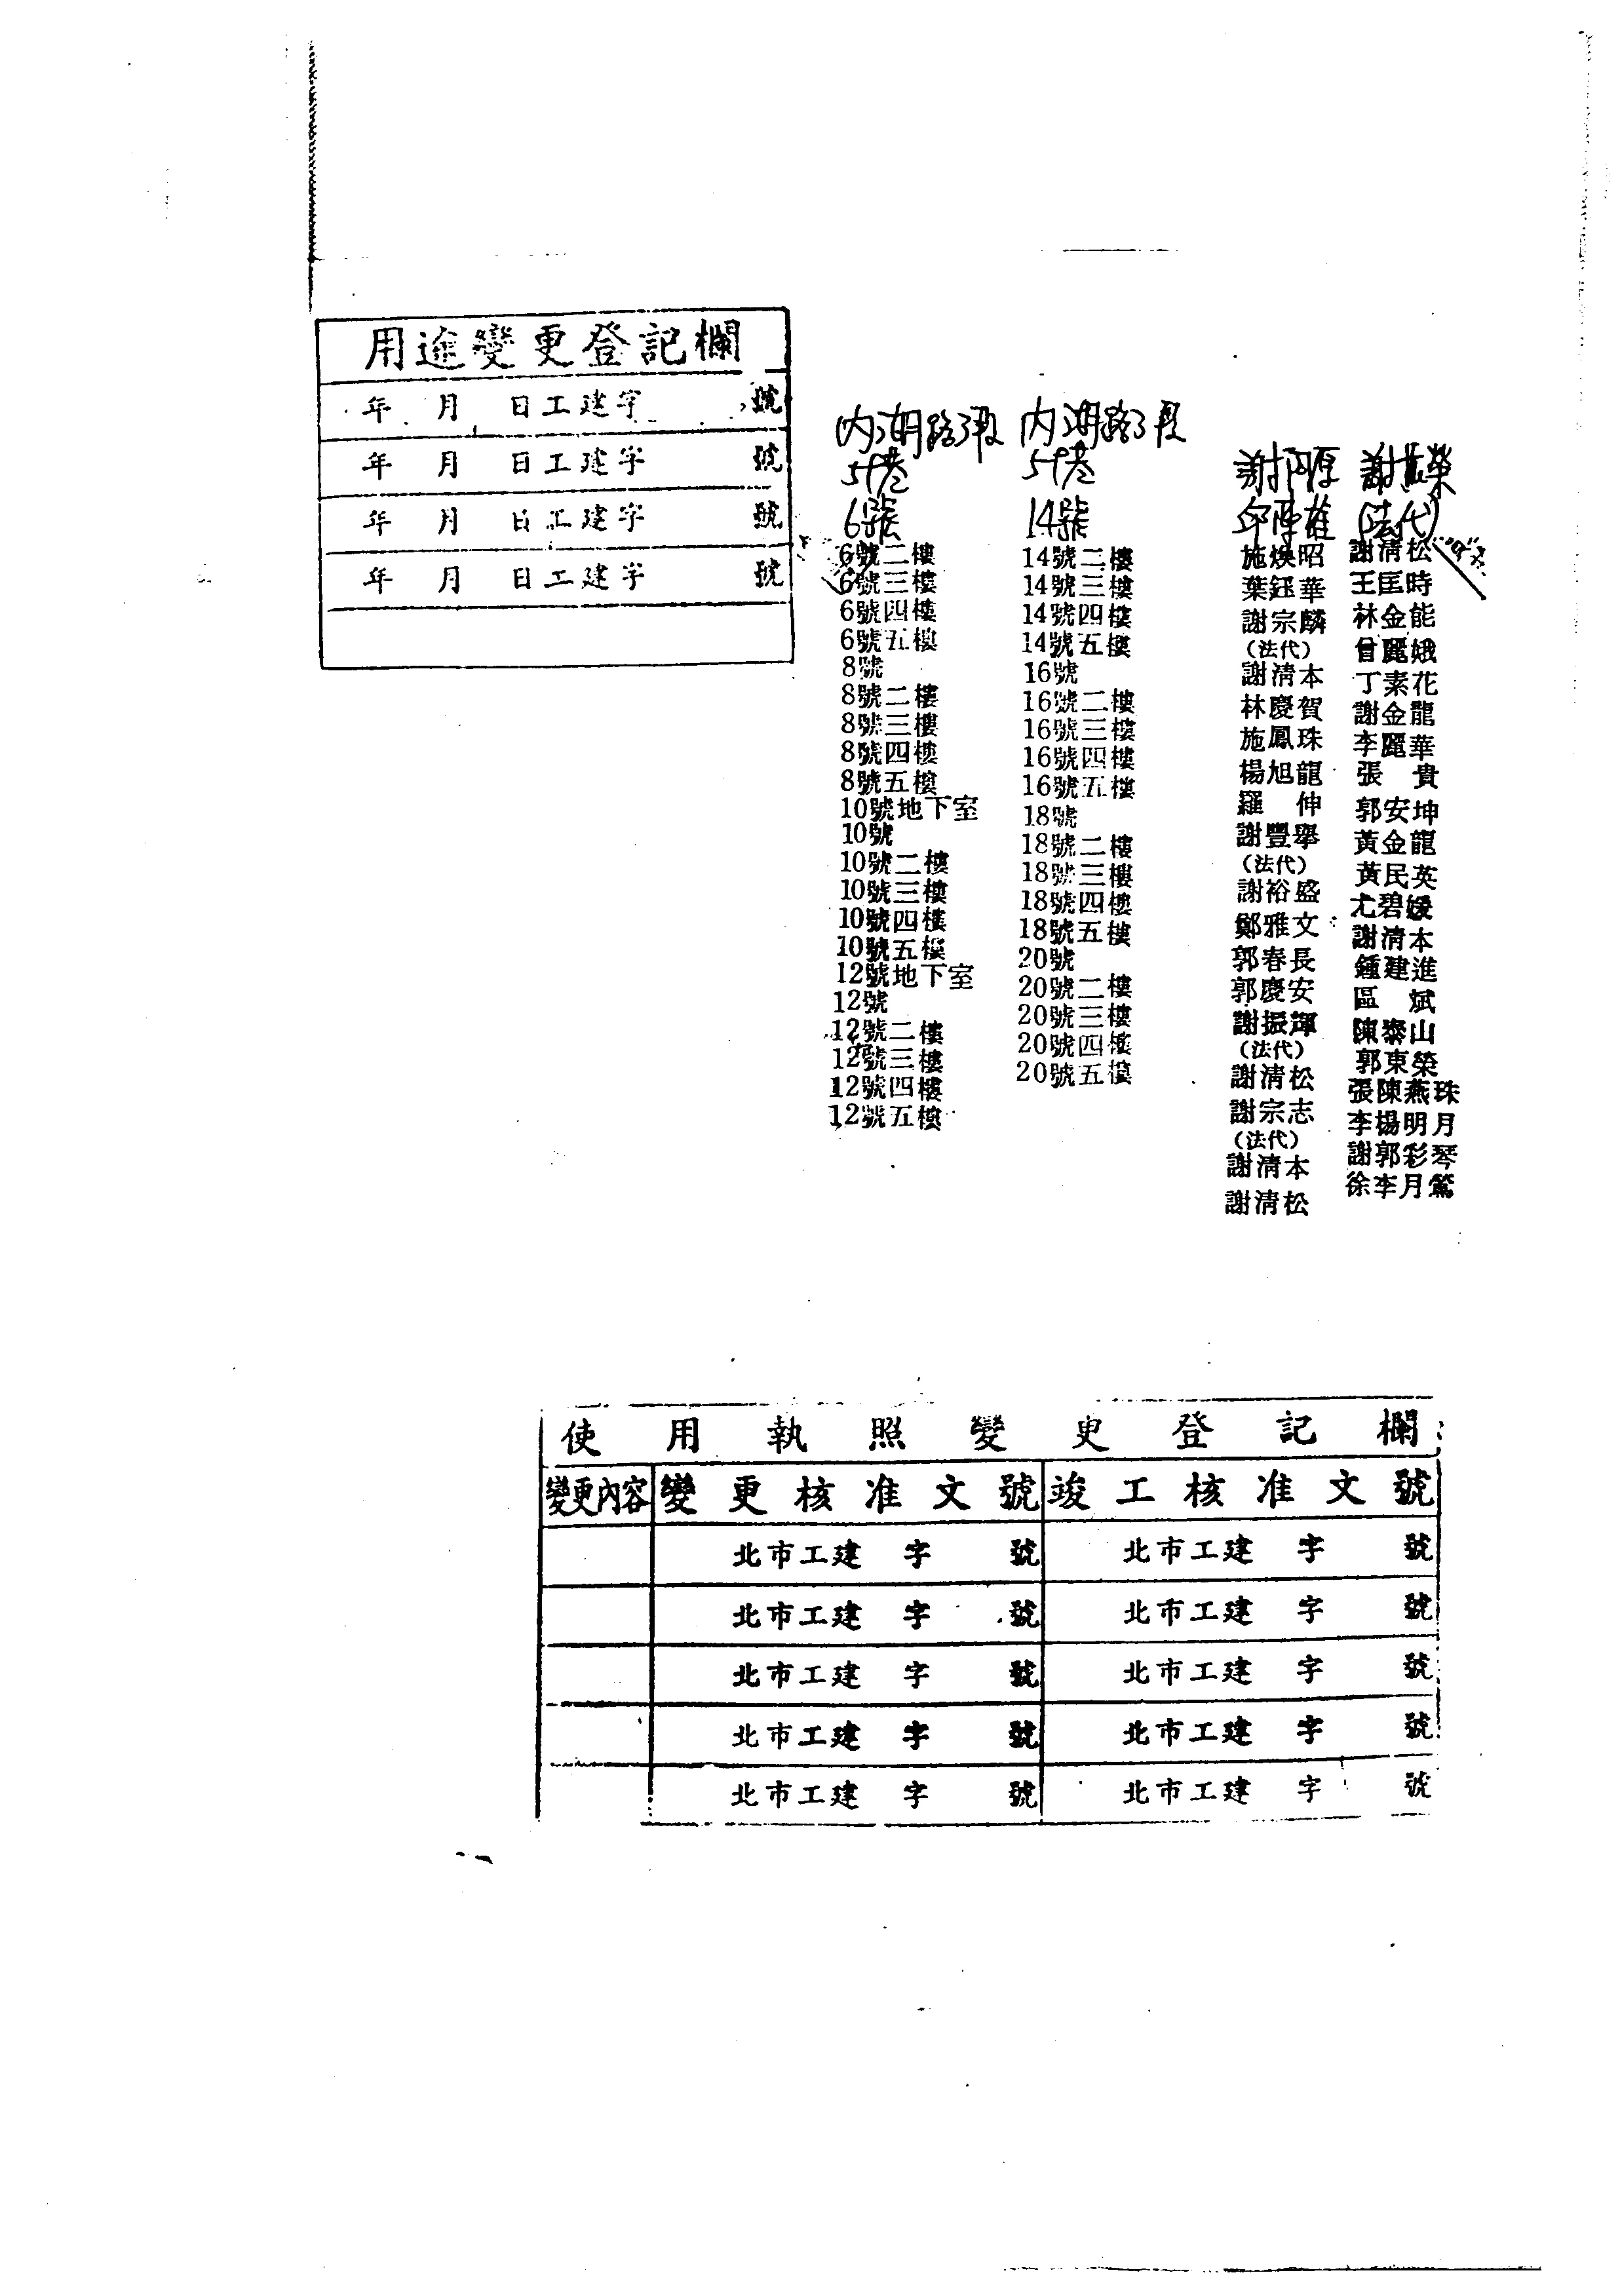 用途變更登記欄
年 月 日工建字 號
年 月 日工建字 號
年 月 日工建字 號
年 月 日工建字 號
內湖路
巷
6號
6號二樓
6號三樓
6號四樓
6號五樓
8號
8號二樓
8號三樓
8號四樓
8號五樓
10號地下室
10號
10號二樓
10號三樓
10號四樓
10號五樓
12號地下室
12號
12號二樓
12號三樓
12號四樓
12號五樓
內湖路
巷
14號
14號二樓
14號三樓
14號四樓
14號五樓
16號
16號二樓
16號三樓
16號四樓
16號五樓
18號
18號二樓
18號三樓
18號四樓
18號五樓
20號
20號二樓
20號三樓
20號四樓
20號五樓
施煥昭
葉鈺華
謝宗麟
(法代)
謝清本
林慶賀
施鳳珠
楊旭龍
羅 伸
謝豐舉
(法代)
謝裕盛
鄭雅文
郭春長
郭慶安
謝振譚
(法代)
謝清松
謝宗志
(法代)
謝清本
謝清松
(法代)
謝清松
王匡時
林金能
曾麗娥
丁素花
謝金龍
李麗華
張 貴
郭安坤
黃金龍
黃民英
尤碧嬡
謝清本
鍾建進
區 斌
陳泰山
郭東榮
張陳燕珠
李楊明月
謝郭彩琴
徐李月鶯
使用執照變更登記欄
變更內容 變更核准文號 竣工核准文號
北市工建 字 號 北市工建 字 號
北市工建 字 號 北市工建 字 號
北市工建 字 號 北市工建 字 號
北市工建 字 號 北市工建 字 號
北市工建 字 號 北市工建 字 號